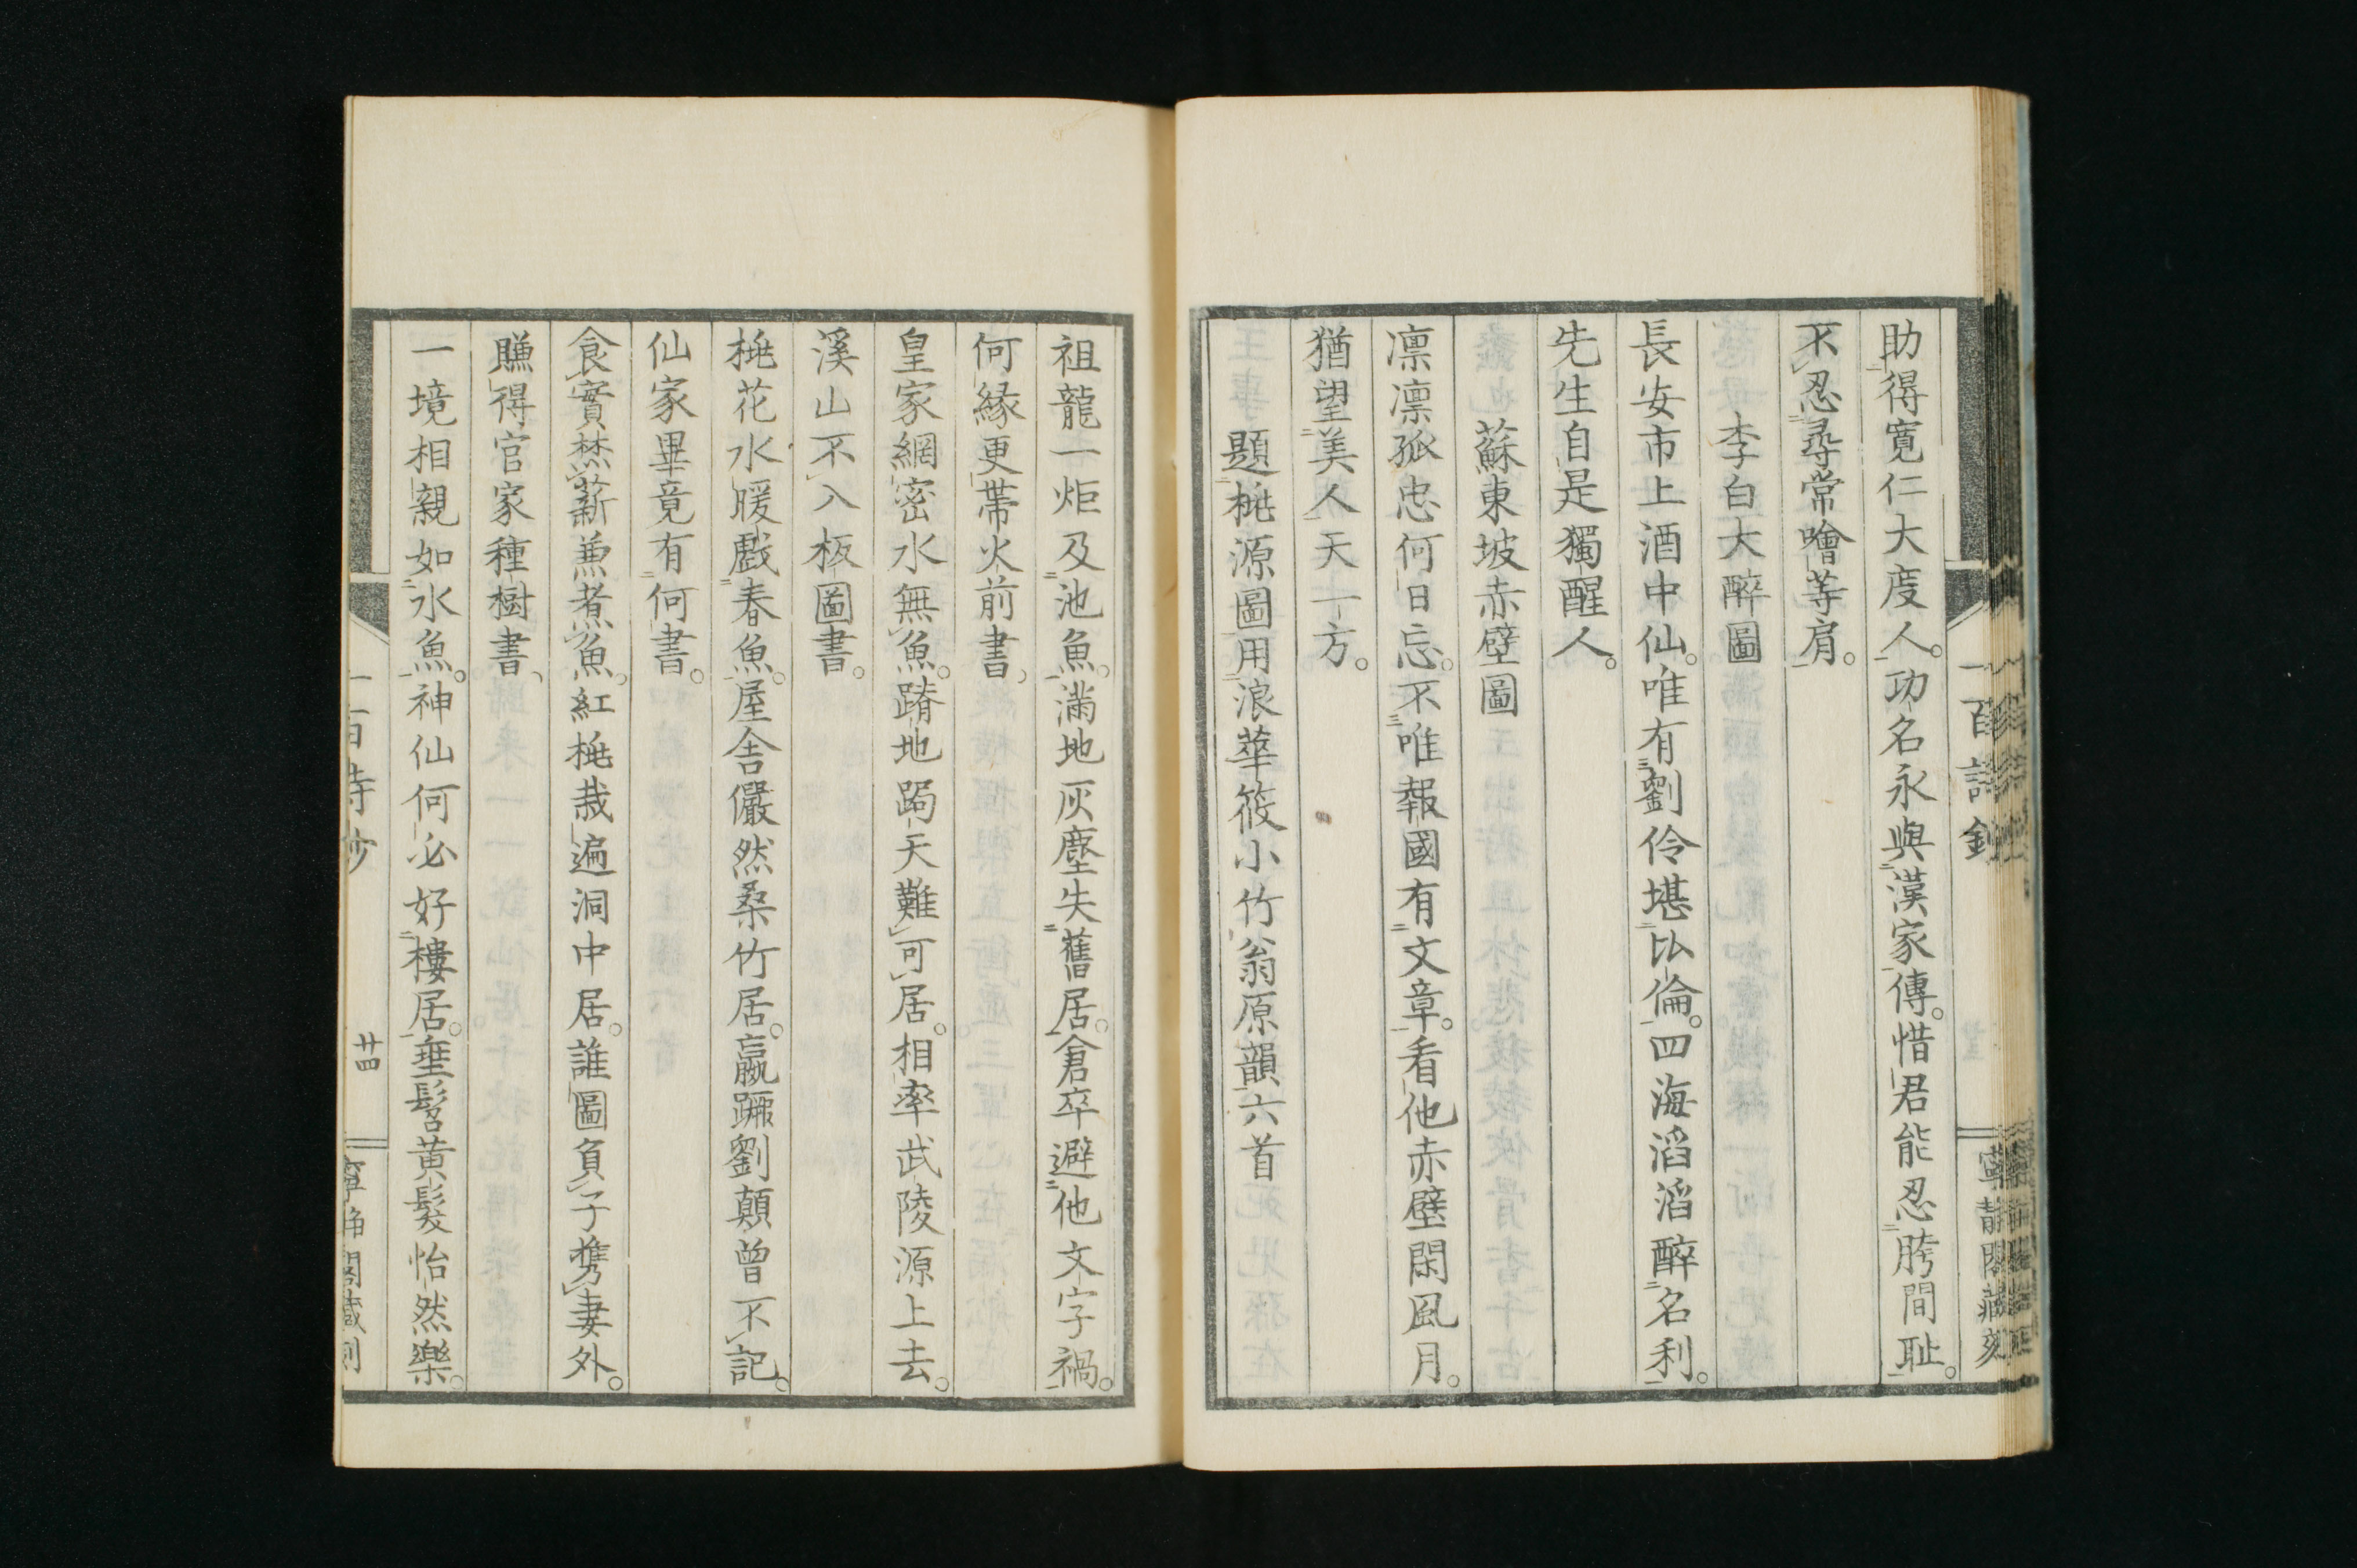 助得寛仁大度人。功名永與漢家傳。惜君能忍胯間耻。
不忍尋常噲等肩。
李白大醉圖
長安市上酒中仙。唯有劉伶堪比倫。四海滔滔醉名利。
先生自是獨醒人。
蘇東坡赤壁圖
凛凛孤忠何日忘。不唯報國有文章。看他赤壁閑風月。
猶望美人天一方。
題桃源圖用浪華筱小竹翁原韻六首
一百詩鈔
寧靜閣藏刻
祖龍一炬及池魚。滿地灰塵失舊居。倉卒避他文字禍。
何縁更帶火前書、
皇家網密水無魚。蹐地跼天難可居。相率武陵源上去。
溪山不入板圖書。
桃花水暖戲春魚。屋舎儼然桑竹居。嬴蹶劉顛曾不記。
仙家畢竟有何書。
食實焚薪兼煮魚。紅桃栽遍洞中居。誰圖負子携妻外。
賺得官家種樹書、
一境相親如水魚。神仙何必好樓居。垂髫黄髮怡然樂。
廿四